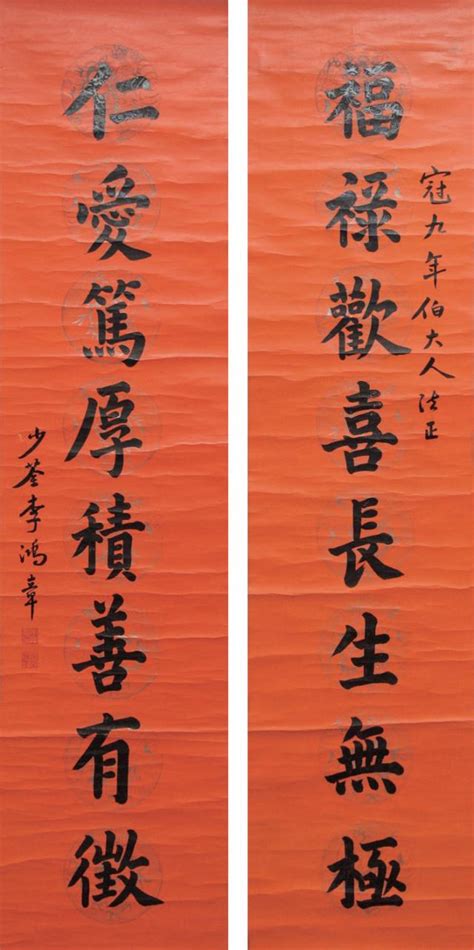 冠九年伯大人法正
福祿歡喜長生無極
仁愛篤厚積善有徵
少荃李鴻章